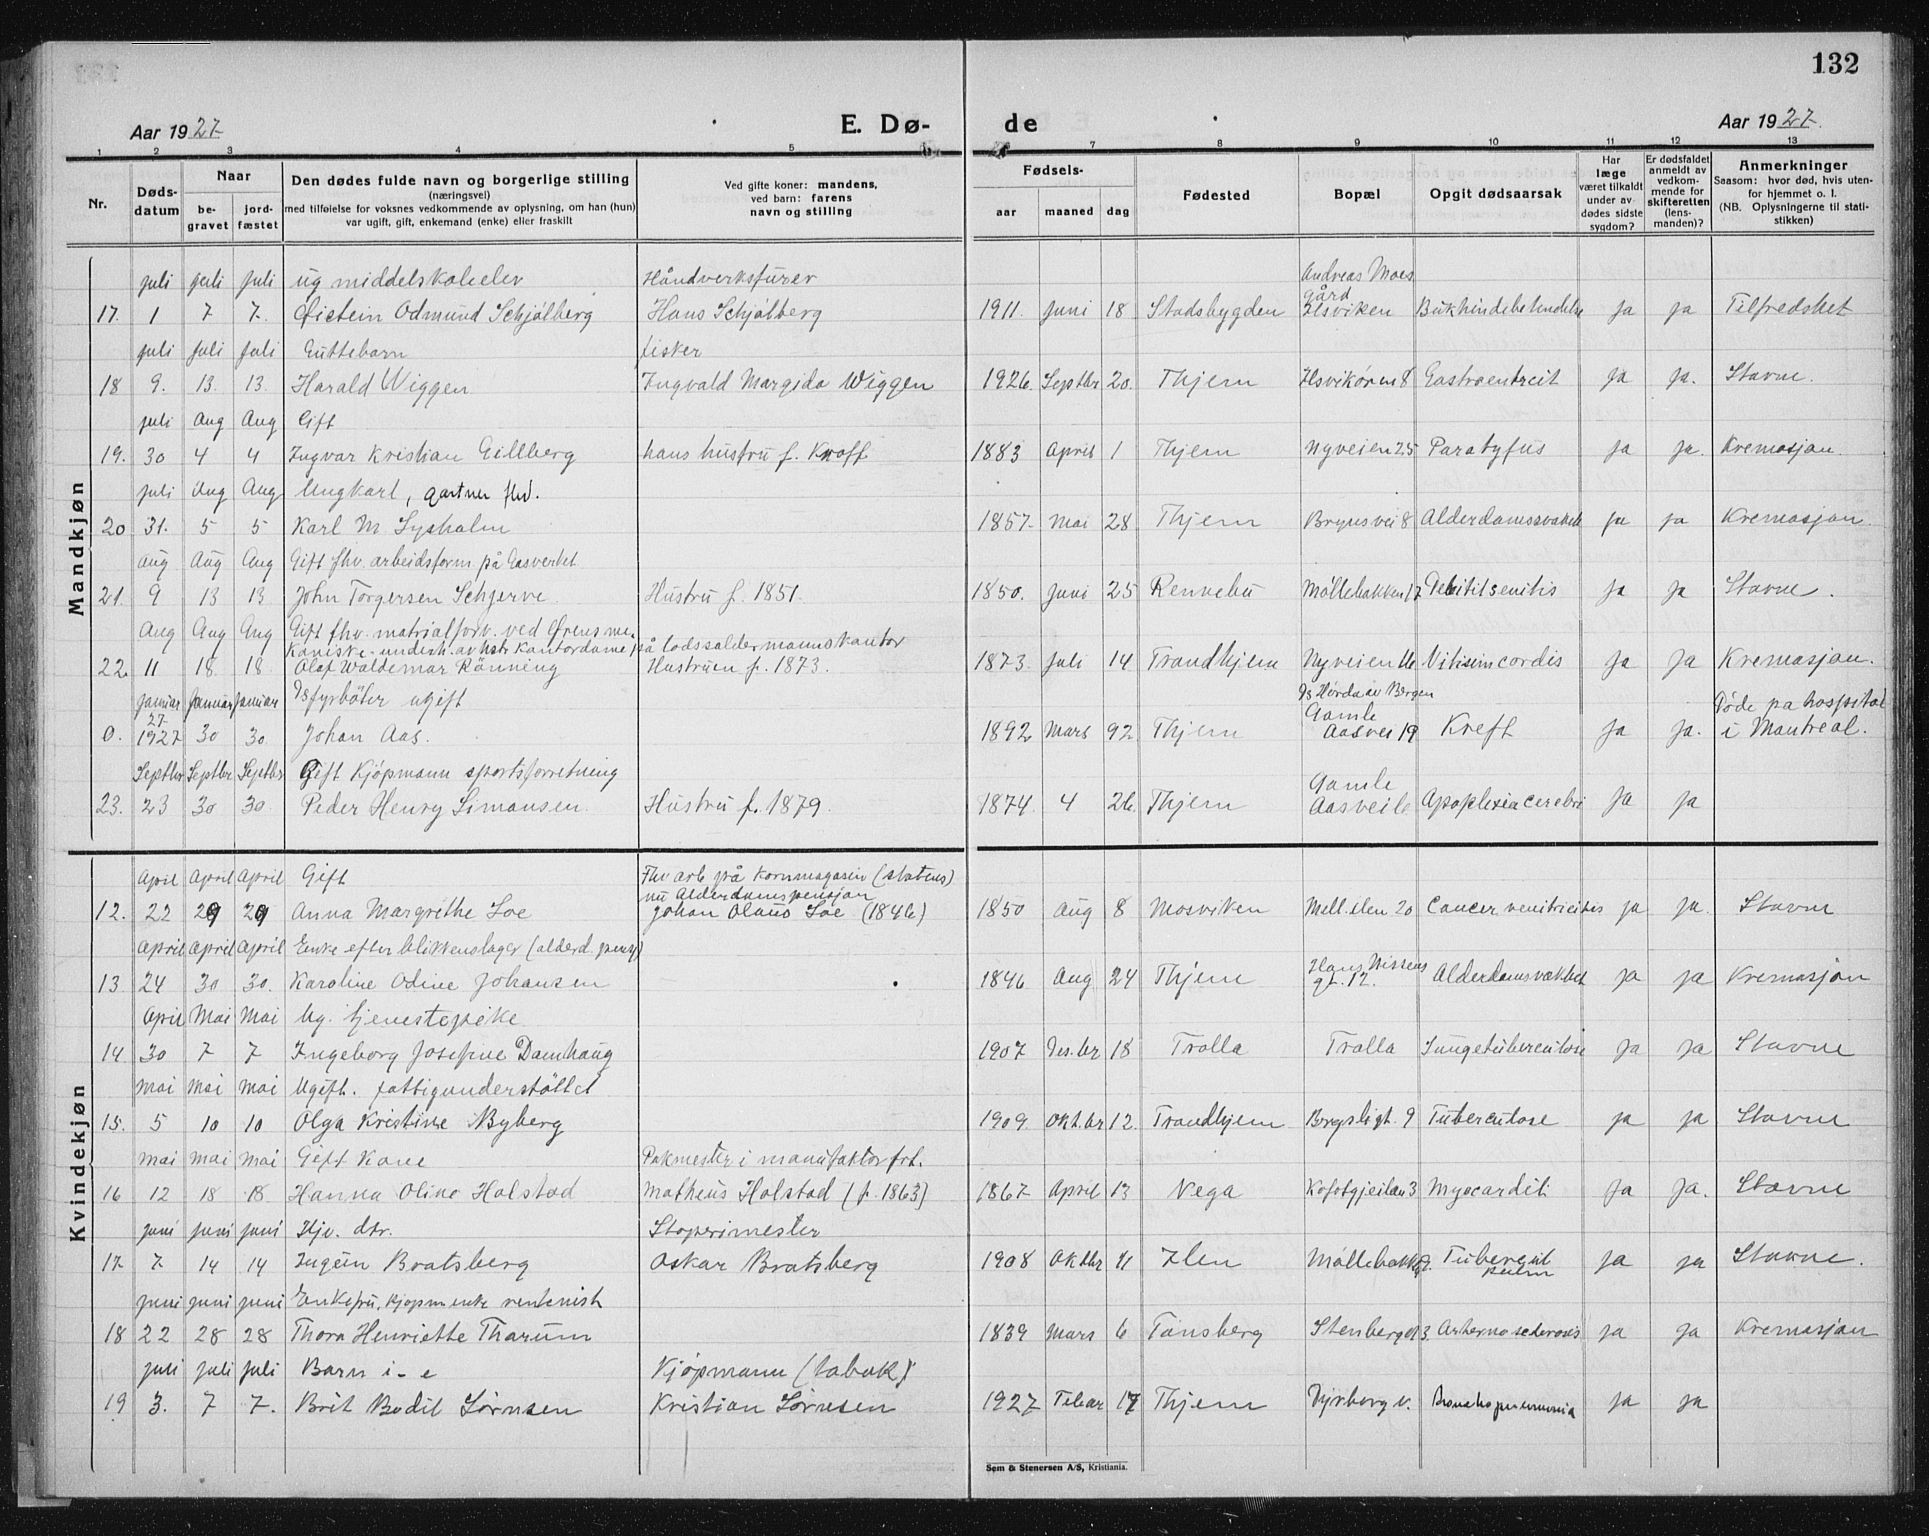 132
Aar 1927. E. Dø- de Aar 1927.
1 2 3 4 5 7 8 9 10 11 12 13
Nr. Døds-datum Naar be-gravet jord-fæstet Den dødes fulde navn og borgerlige stilling (næringsvei) med tilføielse for voksnes vedkommende av oplysning, om han (hun) var ugift, gift, enkemand (enke) eller fraskilt Ved gifte koner: mandens, ved barn: farens navn og stilling Fødsels- aar maaned dag Fødested Bopæl Opgit dødsaarsak Har læge været tilkaldt under av-dødes sidste sygdom? Er dødsfaldet anmeldt av vedkom-mende for skifteretten (lens-manden)? Anmerkninger Saasom: hvor død, hvis uten-for hjemmet o. l. (NB. Oplysningerne til stati-stikken)
Mandkjøn
juli juli juli ug middelskoleelev Håndverksfürer Andreas Moes gård
17. 1 7 7. Øistein Odmund Schjølberg Hans Schjølberg 1911. Juni 18 Stadsbygden Ilsviken Bukhindebetendelse Ja Ja Tilfredshet
juli juli juli Guttebarn fisker
18 9. 13. 13. Harald Wiggen Ingvald Margido Wiggen 1926. Septbr 20. Thjem Ilsvikøren 8 Gastroenterit Ja Ja. Stavne.
juli Aug Aug Gift
19. 30 4 4 Ingvar Kristian Gillberg hans hustru f. Knoff 1883 April 1 Thjem Nyveien 25 Paratyfus Ja Ja. Kremasjon.
juli Aug Aug Ungkarl, gartner fhv.
20 31. 5 5 Karl M Lysholm 1857. Mai 28 Thjem Brynsvei 8 Alderdomssvakhet Ja Ja Kremasjon.
aug Aug Aug Gift fhv. arbeidsform. på Gasverket
21. 9 13 13 John Torgersen Schjerve. Hustru f. 1851. 1850. Juni 25 Rennebu Møllebakken 17 Debilit senilis Ja Ja Stavne.
Aug Aug Aug Gift fhv. matrialforv. ved Ørens me.
på lodssaldermannskontor
22. 11 18 18. Olaf Waldemar Rönning Hustruen f. 1873. 1873. Juli 14 Trondhjem Nyveien 16 Vitium cordis Ja Ja Kremasjon.
Januar Januar Januar fyrböter ugift Ds Hørda av Bergen Døde pa hospital
0. 27 1927 30 30. Johan Aas. 1892 Mars 92 Thjem Gamle Aasvei 19 Kreft Ja Ja. i Montreal.
Septbr Septbr Septbr Gift Kjøpmann sportsforretning
23. 23 30 30. Peder Henry Simonsen. Hustru f. 1879. 1874. 4 26. Thjem Gamle Aasvei Apoplexia cerebri Ja Ja
Kvindekjøn
April April April Gift Fhv arb på Kornmagasin (statens)
nu Alderdomspensjon
12. 22 29 29 Anna Margrithe Soe Johan Olaus Soe (1846) 1850 Aug 8 Mosviken Mell.ilen 20 Cancer ventricitis Ja Ja. Stavne
April April April Enke efter blikkenslager (alderd. pensj)
13. 24 30 30. Karoline Odine Johansen 1846 Aug 24 Thjem Hans Nissens gt. 12. Alderdomsvækket Ja Ja Kremasjon
April Mai Mai Ug. tjenestepike
14 30 7 7 Ingeborg Josefine Damhaug 1907 Des.br 18 Trolla Trolla Lungetuberculose Ja Ja Stavne
Mai Mai Mai Ugift. fattigunderstöttet
15. 5 10 10 Olga Kristine Nyberg 1909. Okt.br 12. Trondhjem Borgsligt. 9 Tuberculose Ja Ja Stavne
Mai Mai Mai Gift Kone Pakmester i manufaktor frt.
16 12 18 18. Hanna Oline Holstad Matheus Holstad (f. 1863) 1867. April 13 Vega Kofotgjeilan 3 Myocardit Ja Ja. Stavne
juni juni juni Hjv. dtr. Stoperimester
17. 7 14 14 Ingein Bratsberg Oskar Bratsberg 1908 Oktbr 11 Ilen Møllebakk Tubercul pulm Ja Ja Stavne.
juni juni juni Enkefru, kjøpm.enke rentenist
18 22 28 28 Thora Henriette Tharum 1839 Mars 6 Tønsberg Stenberggt 3. Arteriosclerosis Ja Ja Kremasjon
juli juli juli Barn i-e Kjøpmann (tobak)
19 3. 7 7. Brit Bodil Sørnsen Kristian Sørnsen 1927 Febar 17 Thjem Bronchopneumonia Ja Ja
Sem & Stenersen A/S, Kristiania.